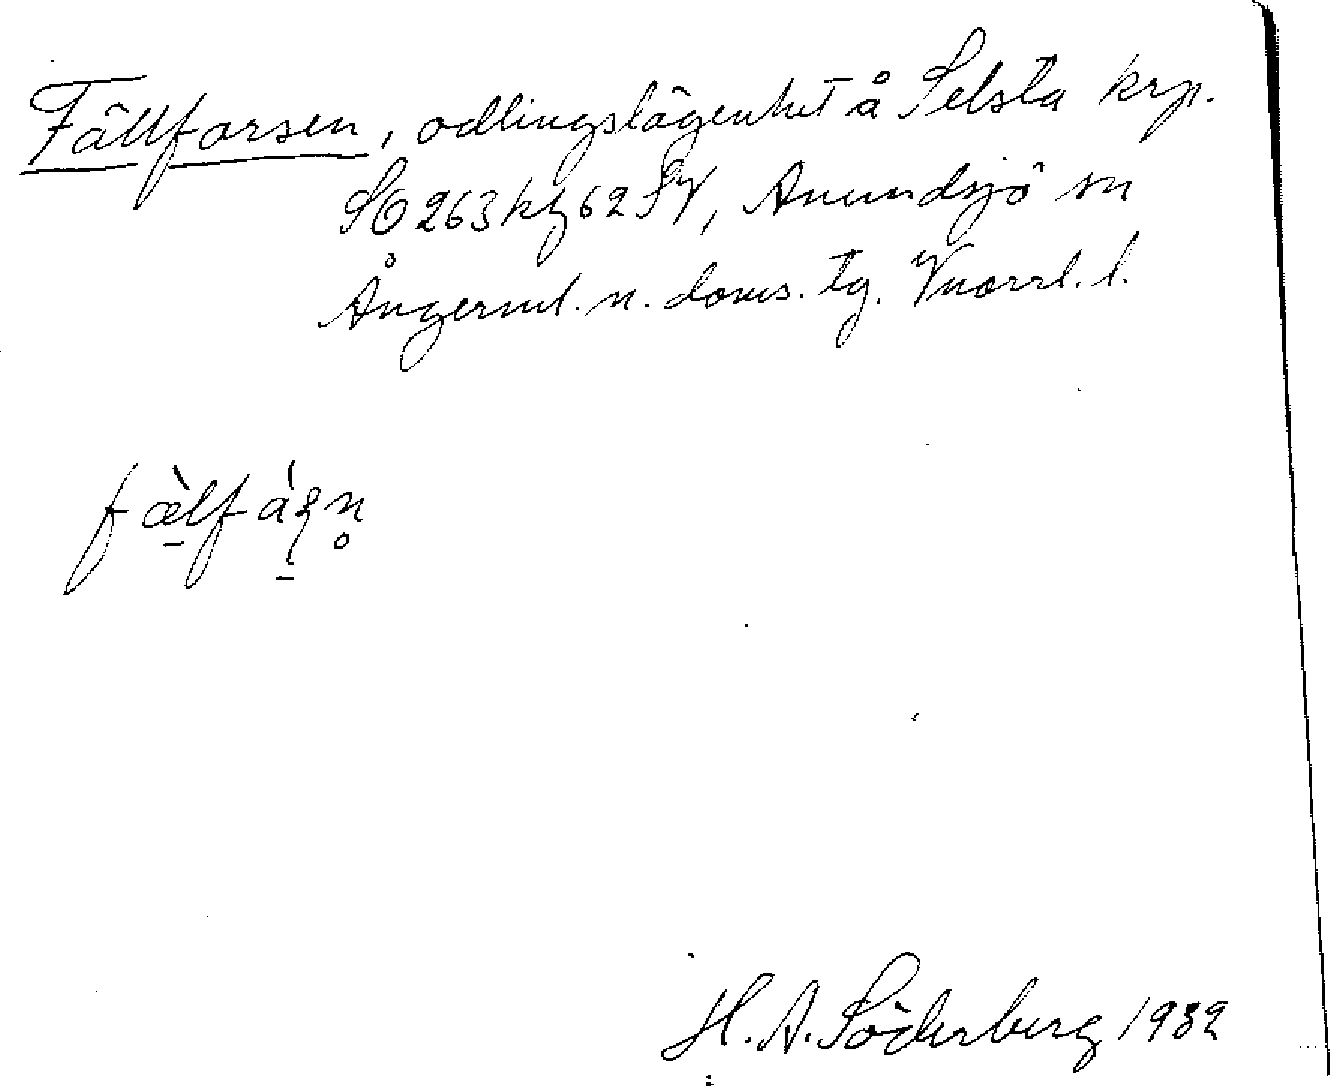 Fällforsen, odlingslägenhet å Selsta krp.
SO 263 kbl 62 SV, Anundsjö sn
Ångerml. n. doms. tg. Vnorrl. l.
H. A. Söderberg 1932